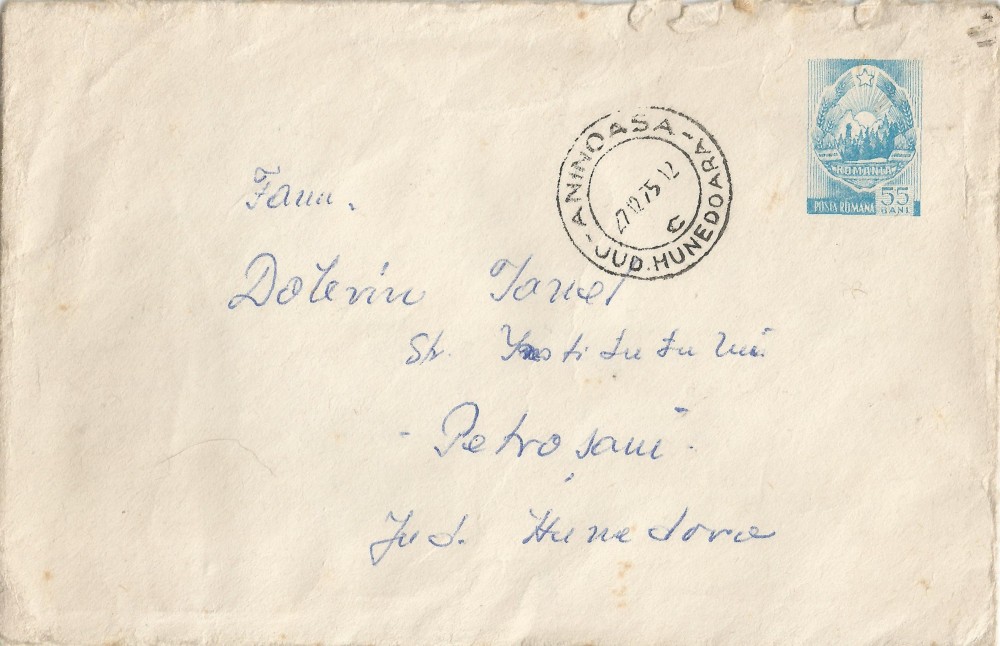 ROMANIA
POSTA ROMANA 55 BANI
- ANINOASA -
JUD. HUNEDOARA
27.12.75.12
C
Fam.
Dolevin
Str. Institutului
- Petroșani -
Jud. Hunedora